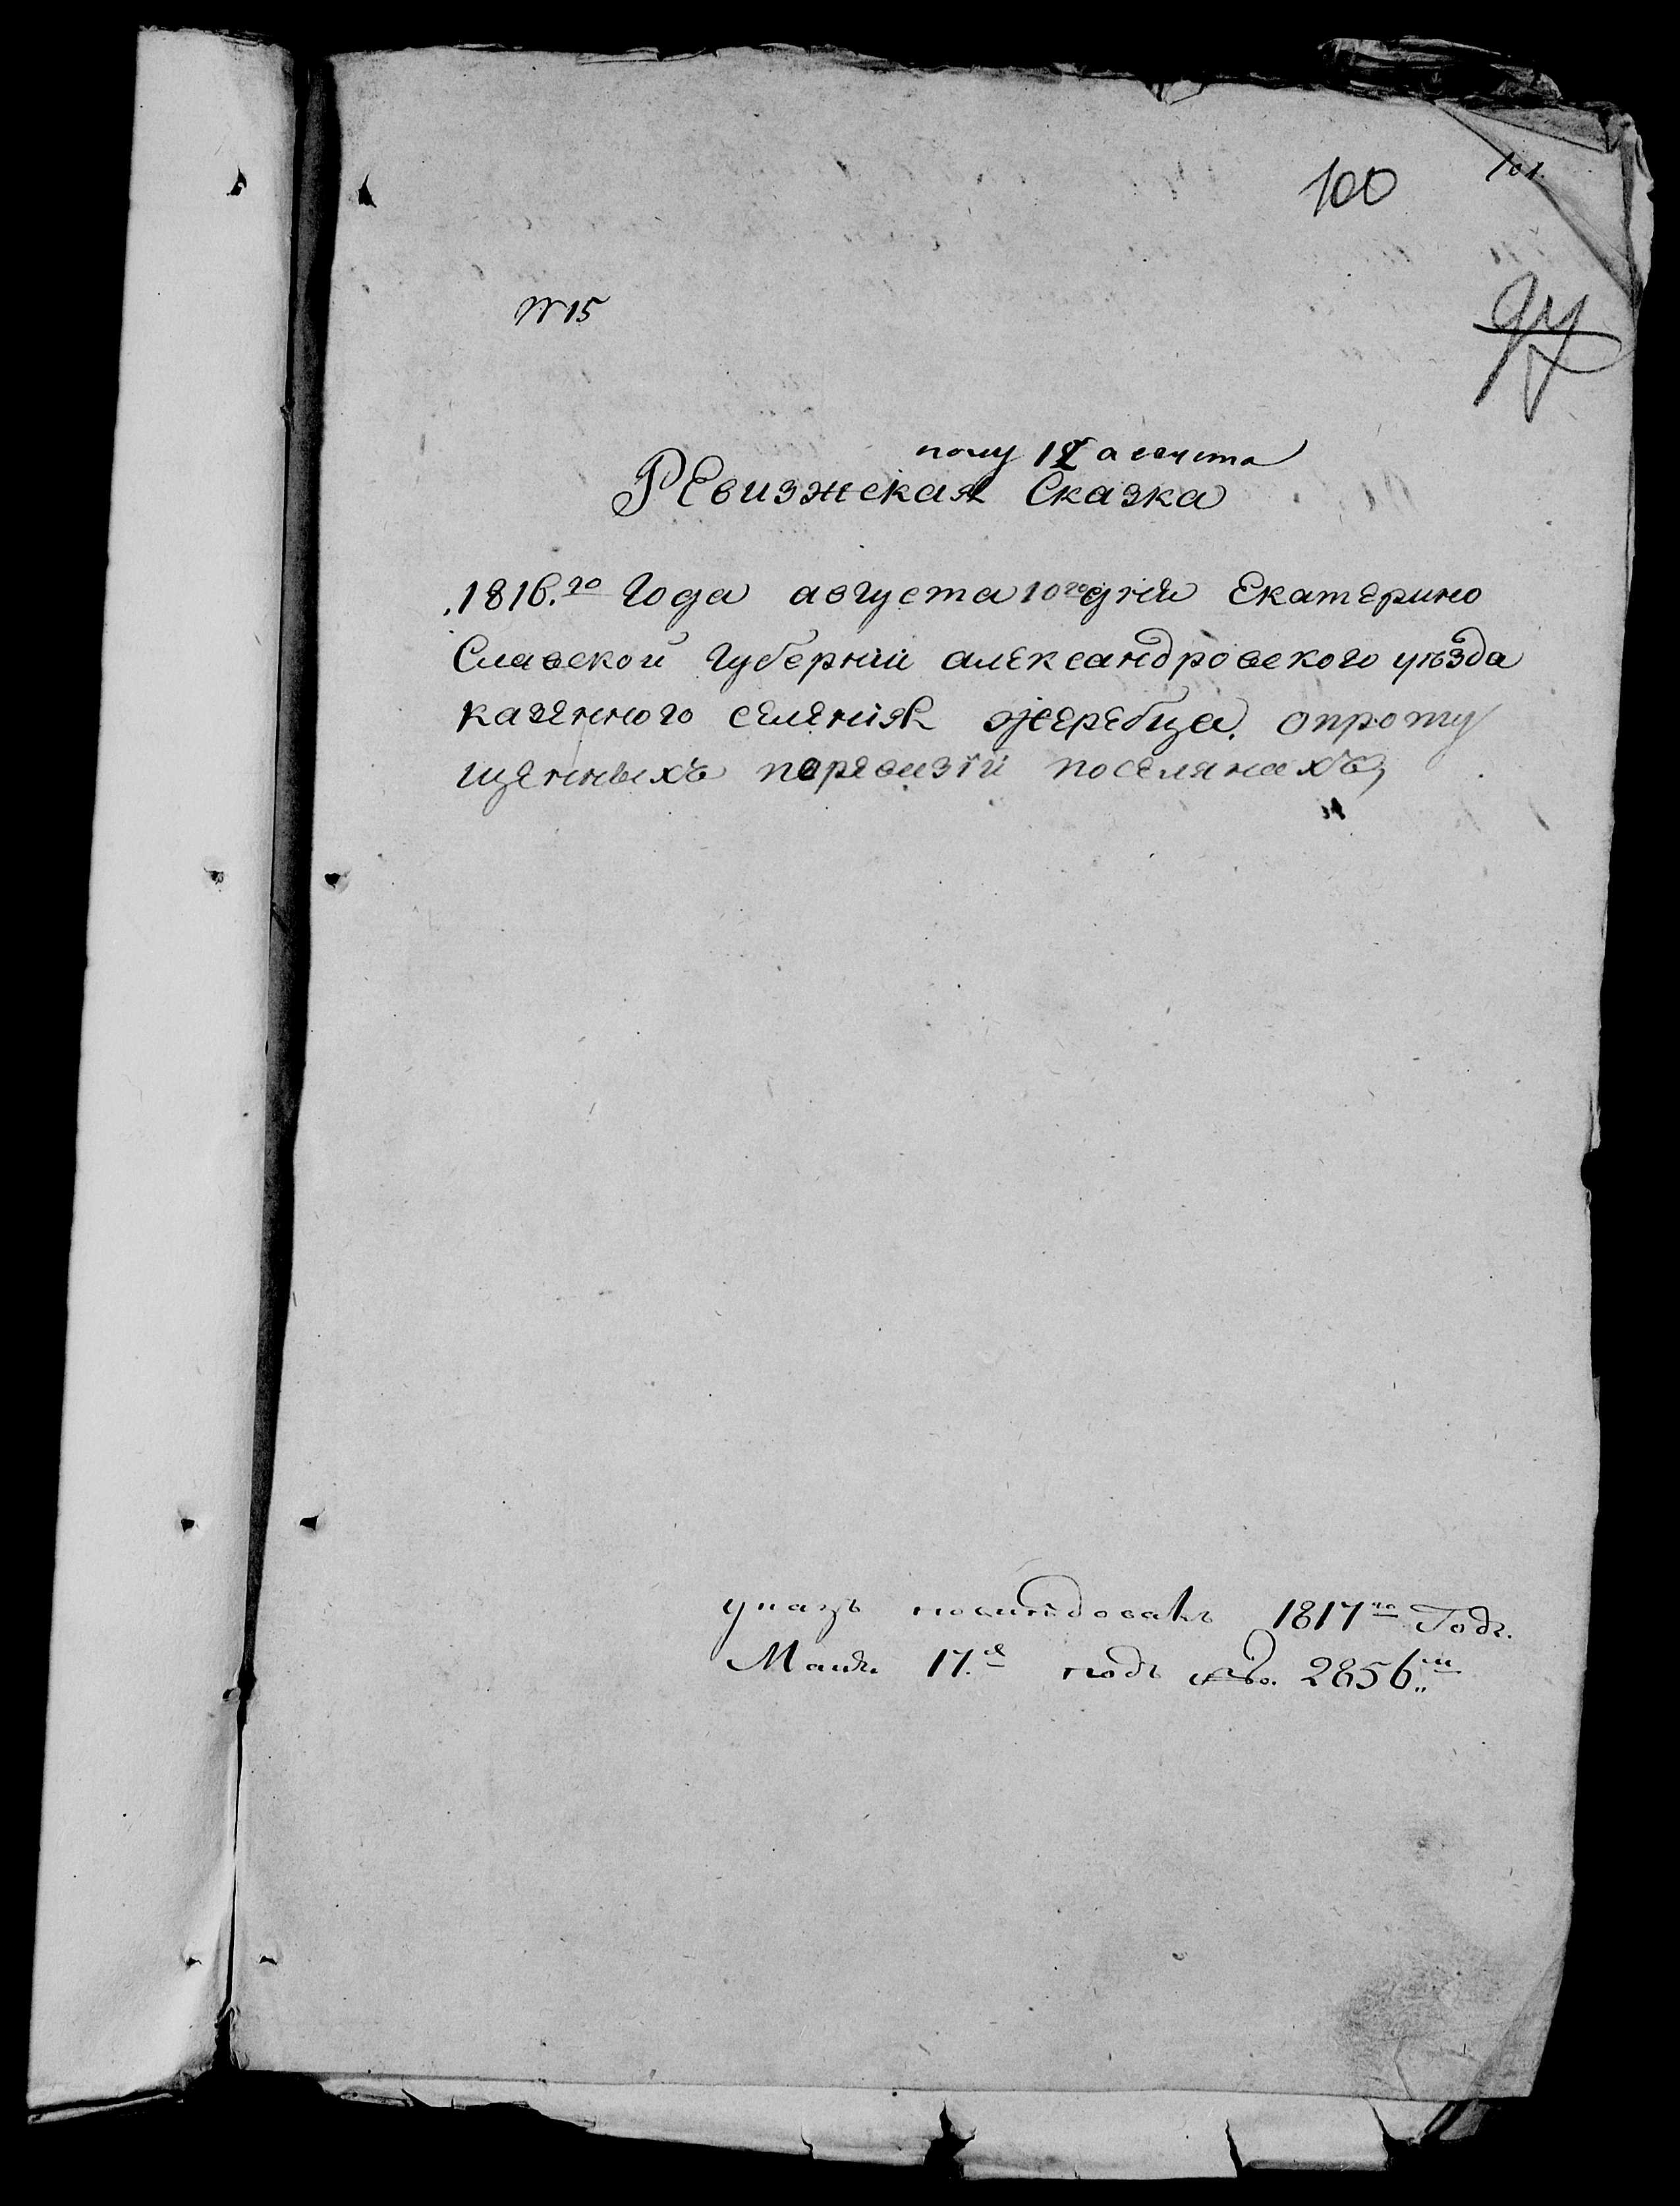 100
101
№ 15
полу 12 августа
РЕвизжская Сказка
1816.го Года августа 10го дня Екатерино
Славской Губернии александровского уѣзда
казенного селения жеребца. опропу
щенныхъ поревизіи поселянахъ,
указъ последовалъ 1817го Года.
Маия 17.го подъ № 2856.мъ